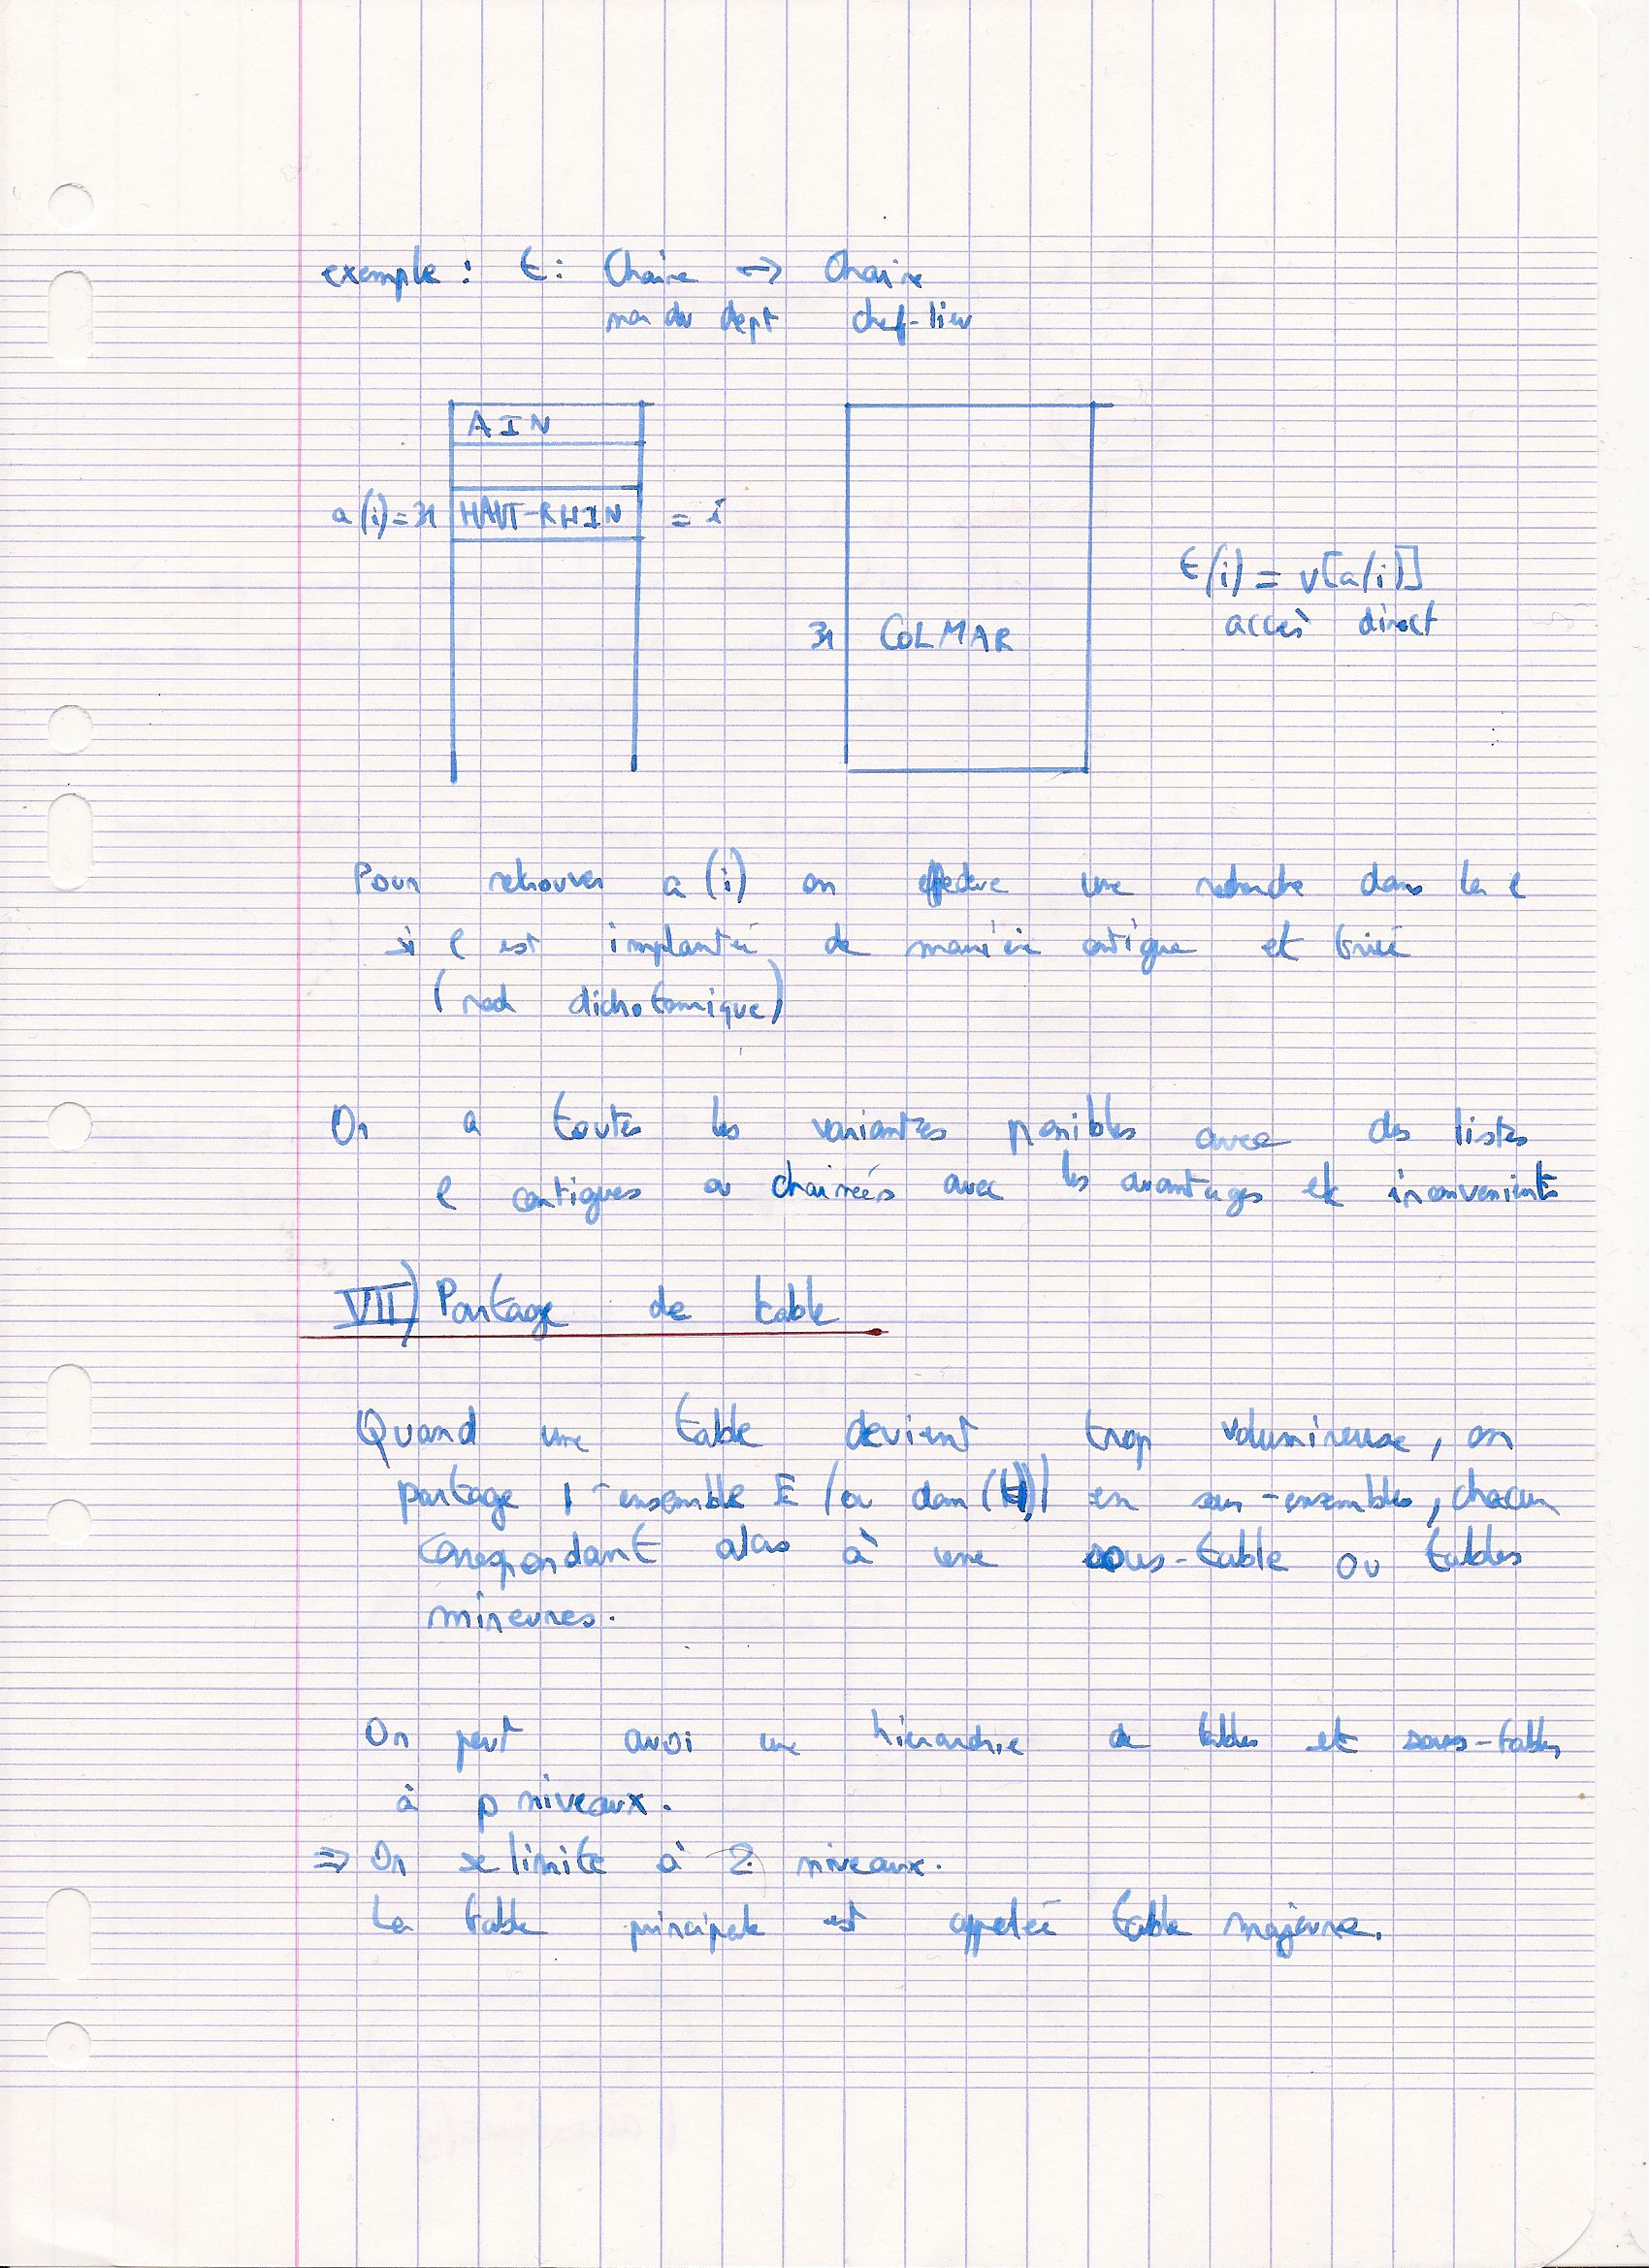 exemple : t : Chaine → Chaine
nom du dept chef-lieu
AIN
a(i) = 31 HAUT-RHIN = i
t(i) = v[a(i)]
accès direct
31 COLMAR
Pour retrouver a(i) on effectue une recherche dans la l
si l est implantée de manière contigue et triée
(rech dichotomique)
On a toutes les variantes possibles avec des listes
l contigues ou chainées avec les avantages et inconvenients
VII) Partage de table
Quand une table devient trop volumineuse, on
partage l'ensemble E (ou dom(t)) en sous-ensembles, chacun
correspondant alors à une sous-table ou tables
mineures.
On peut avoir une hierarchie de tables et sous-tables
à p niveaux.
⇒ On se limite à 2 niveaux.
La table principale est appelée table majeure.